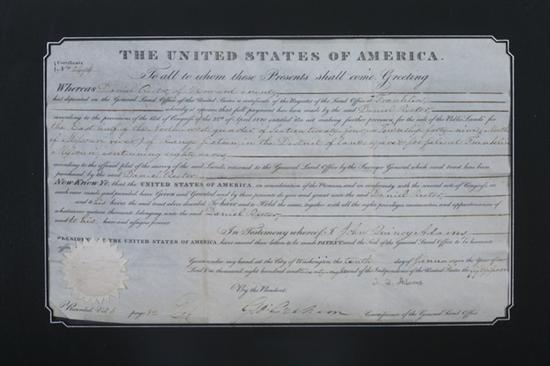 Certificate
No.
THE UNITED STATES OF AMERICA.
To all to whom these Presents shall come, Greeting
Whereas Daniel of Howard County
has deposited in the General Land Office of the United States a certificate of the Register of the Land Office at Franklin
whereby it appears that full payment has been made by the said Daniel
according to the provisions of the Act of Congress of the 24th of April 1820 entitled "An act making further provision for the sale of the Public Lands" for
the East half of the North west quarter of Section twenty four in Township forty nine North
of Range sixteen in the District of Lands offered for sale at Franklin
Missouri containing eighty acres
according to the official plat of the survey of the said Lands returned to the General Land Office by the Surveyor General which said tract has been
purchased by the said Daniel
Now Know Ye, that the UNITED STATES OF AMERICA, in consideration of the Premises, and in conformity with the several acts of Congress, in
such case made and provided have Given and Granted and by these presents do give and grant unto the said Daniel
and to his heirs the said tract above described: To have and to Hold the same, together with all the rights privileges immunities and appurtenances of
whatsoever nature thereunto belonging unto the said Daniel
and to his heirs and assigns forever
In Testimony whereof, I John Quincy Adams
PRESIDENT OF THE UNITED STATES OF AMERICA have caused these Letters to be made PATENT and the Seal of the General Land Office to be hereunto
affixed
Given under my hand at the City of Washington the tenth day of January in the Year of our
Lord one thousand eight hundred and twenty eight and of the Independence of the United States the fifty second
By the President
J. Q. Adams
Recorded Vol page
Geo Graham Commissioner of the General Land Office